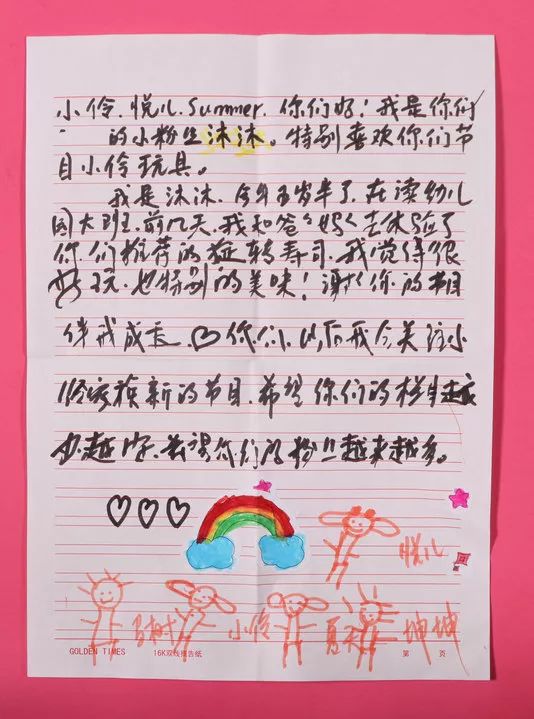 小伶.悦儿.Summer.你们好！我是你们
的小粉丝沐沐。特别喜欢你们节
目小伶玩具。
我是沐沐.今年五岁半了.在读幼儿
园大班.前几天.我和爸爸妈妈去体验了
你们推荐的旋转寿司.我觉得很
好玩.也特别的美味！谢谢你们的节目
伴我成长.你们.以后我会关注小
伶家族新的节目.希望你们的节目越
办越好.希望你们的粉丝越来越多。
悦儿
小伶
坤坤
GOLDEN TIMES
16K双线报告纸
第 页